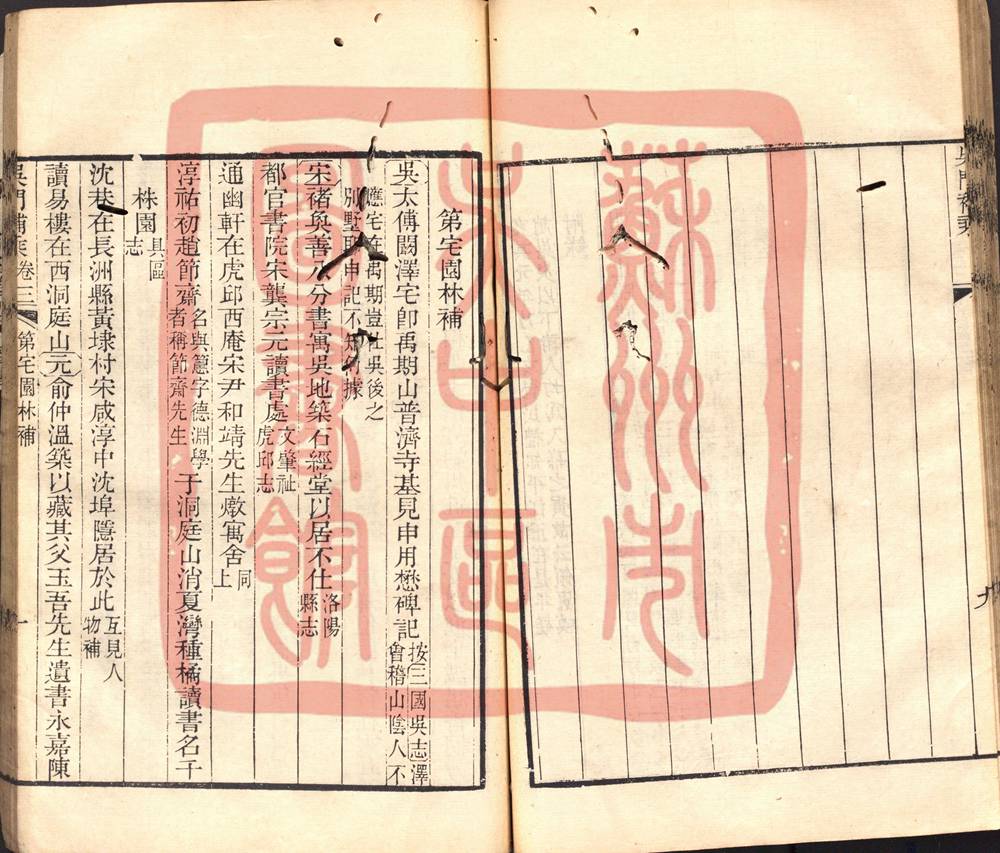 九
第宅園林補
吳太傅闞澤宅卽禹期山普濟寺基見申用懋碑記按三國吳志澤會稽山陰人不
應宅在禹期豈仕吳後之別墅耶申記不知何據
宋褚奐善八分書寓吳地築石經堂以居不仕洛陽縣志
都官書院宋龔宗元讀書處文肇祉虎邱志
通幽軒在虎邱西庵宋尹和靖先生燉寓舍同上
淳祐初趙節齋名與𥲅字德淵學者稱節齋先生于洞庭山消夏灣種橘讀書名千
株園具區志
沈巷在長洲縣黃埭村宋咸淳中沈埠隱居於此互見人物補
讀易樓在西洞庭山元俞仲溫築以藏其父玉吾先生遺書永嘉陳
吳門補乘卷三 第宅園林補 一
蘇州市吳中區圖書館